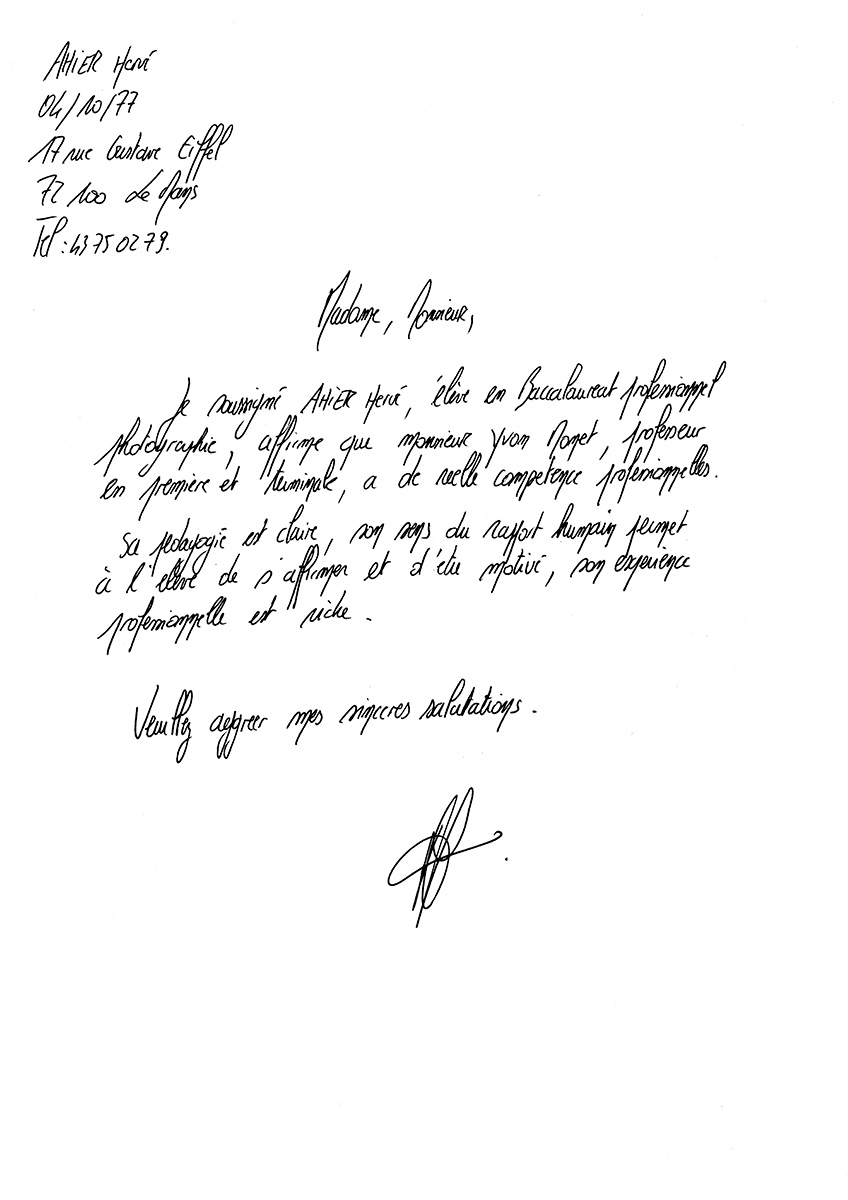 AHIER Hervé
04/10/77
17 rue Gustave Eiffel
72 100 Le Mans
Tel : 43 75 02 79.
Madame, Monsieur,
Je soussigné AHIER Hervé, élève en Baccalaureat professionnel
photographie, affirme que monsieur Yvon Monet, professeur
en première et terminale, a de reelle competence professionnelles.
Sa pedagogie est claire, son sens du rapport humain permet
à l'élève de s'affirmer et d'être motivé, son experience
professionnelle est riche.
Veuillez aggreer mes sinceres salutations.